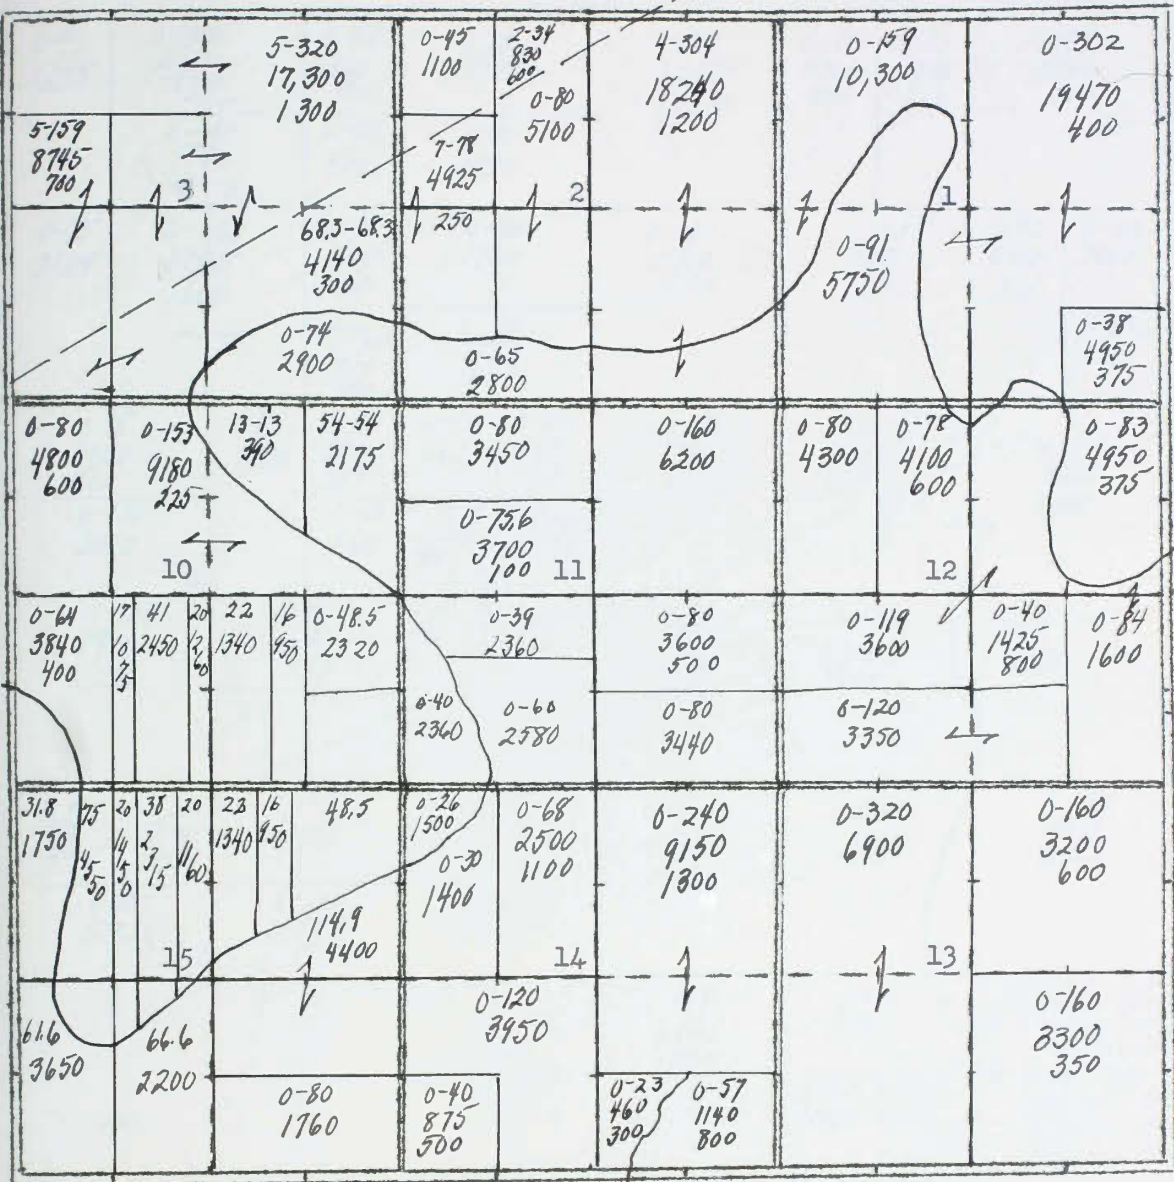 5-320
17,300
1300
0-45
1100
2-34
830
600
0-80
5100
4-304
18240
1200
0-159
10,300
0-302
19470
400
5-159
8745
700
3
7-78
4925
250
2
1
68.3-68.3
4140
300
0-91
5750
0-74
2900
0-65
2800
0-38
4950
375
0-80
4800
600
0-153
9180
225
13-13
390
54-54
2175
0-80
3450
0-160
6200
0-80
4300
0-78
4100
600
0-83
4950
375
10
0-75.6
3700
100
11
12
0-64
3840
400
17
1075
41
2450
20
1260
22
1340
16
950
0-48.5
2320
0-39
2360
0-80
3600
500
0-119
3600
0-40
1425
800
0-84
1600
0-40
2360
0-60
2580
0-80
3440
0-120
3350
31.8
1750
75
4550
20
1450
38
2315
20
1160
23
1340
16
950
48.5
0-26
1500
0-68
2500
1100
0-240
9150
1300
0-320
6900
0-160
3200
600
0-30
1400
114.9
4400
15
14
13
61.6
3650
66.6
2200
0-120
3950
0-160
3300
350
0-80
1760
0-40
875
500
0-23
460
300
0-57
1140
800